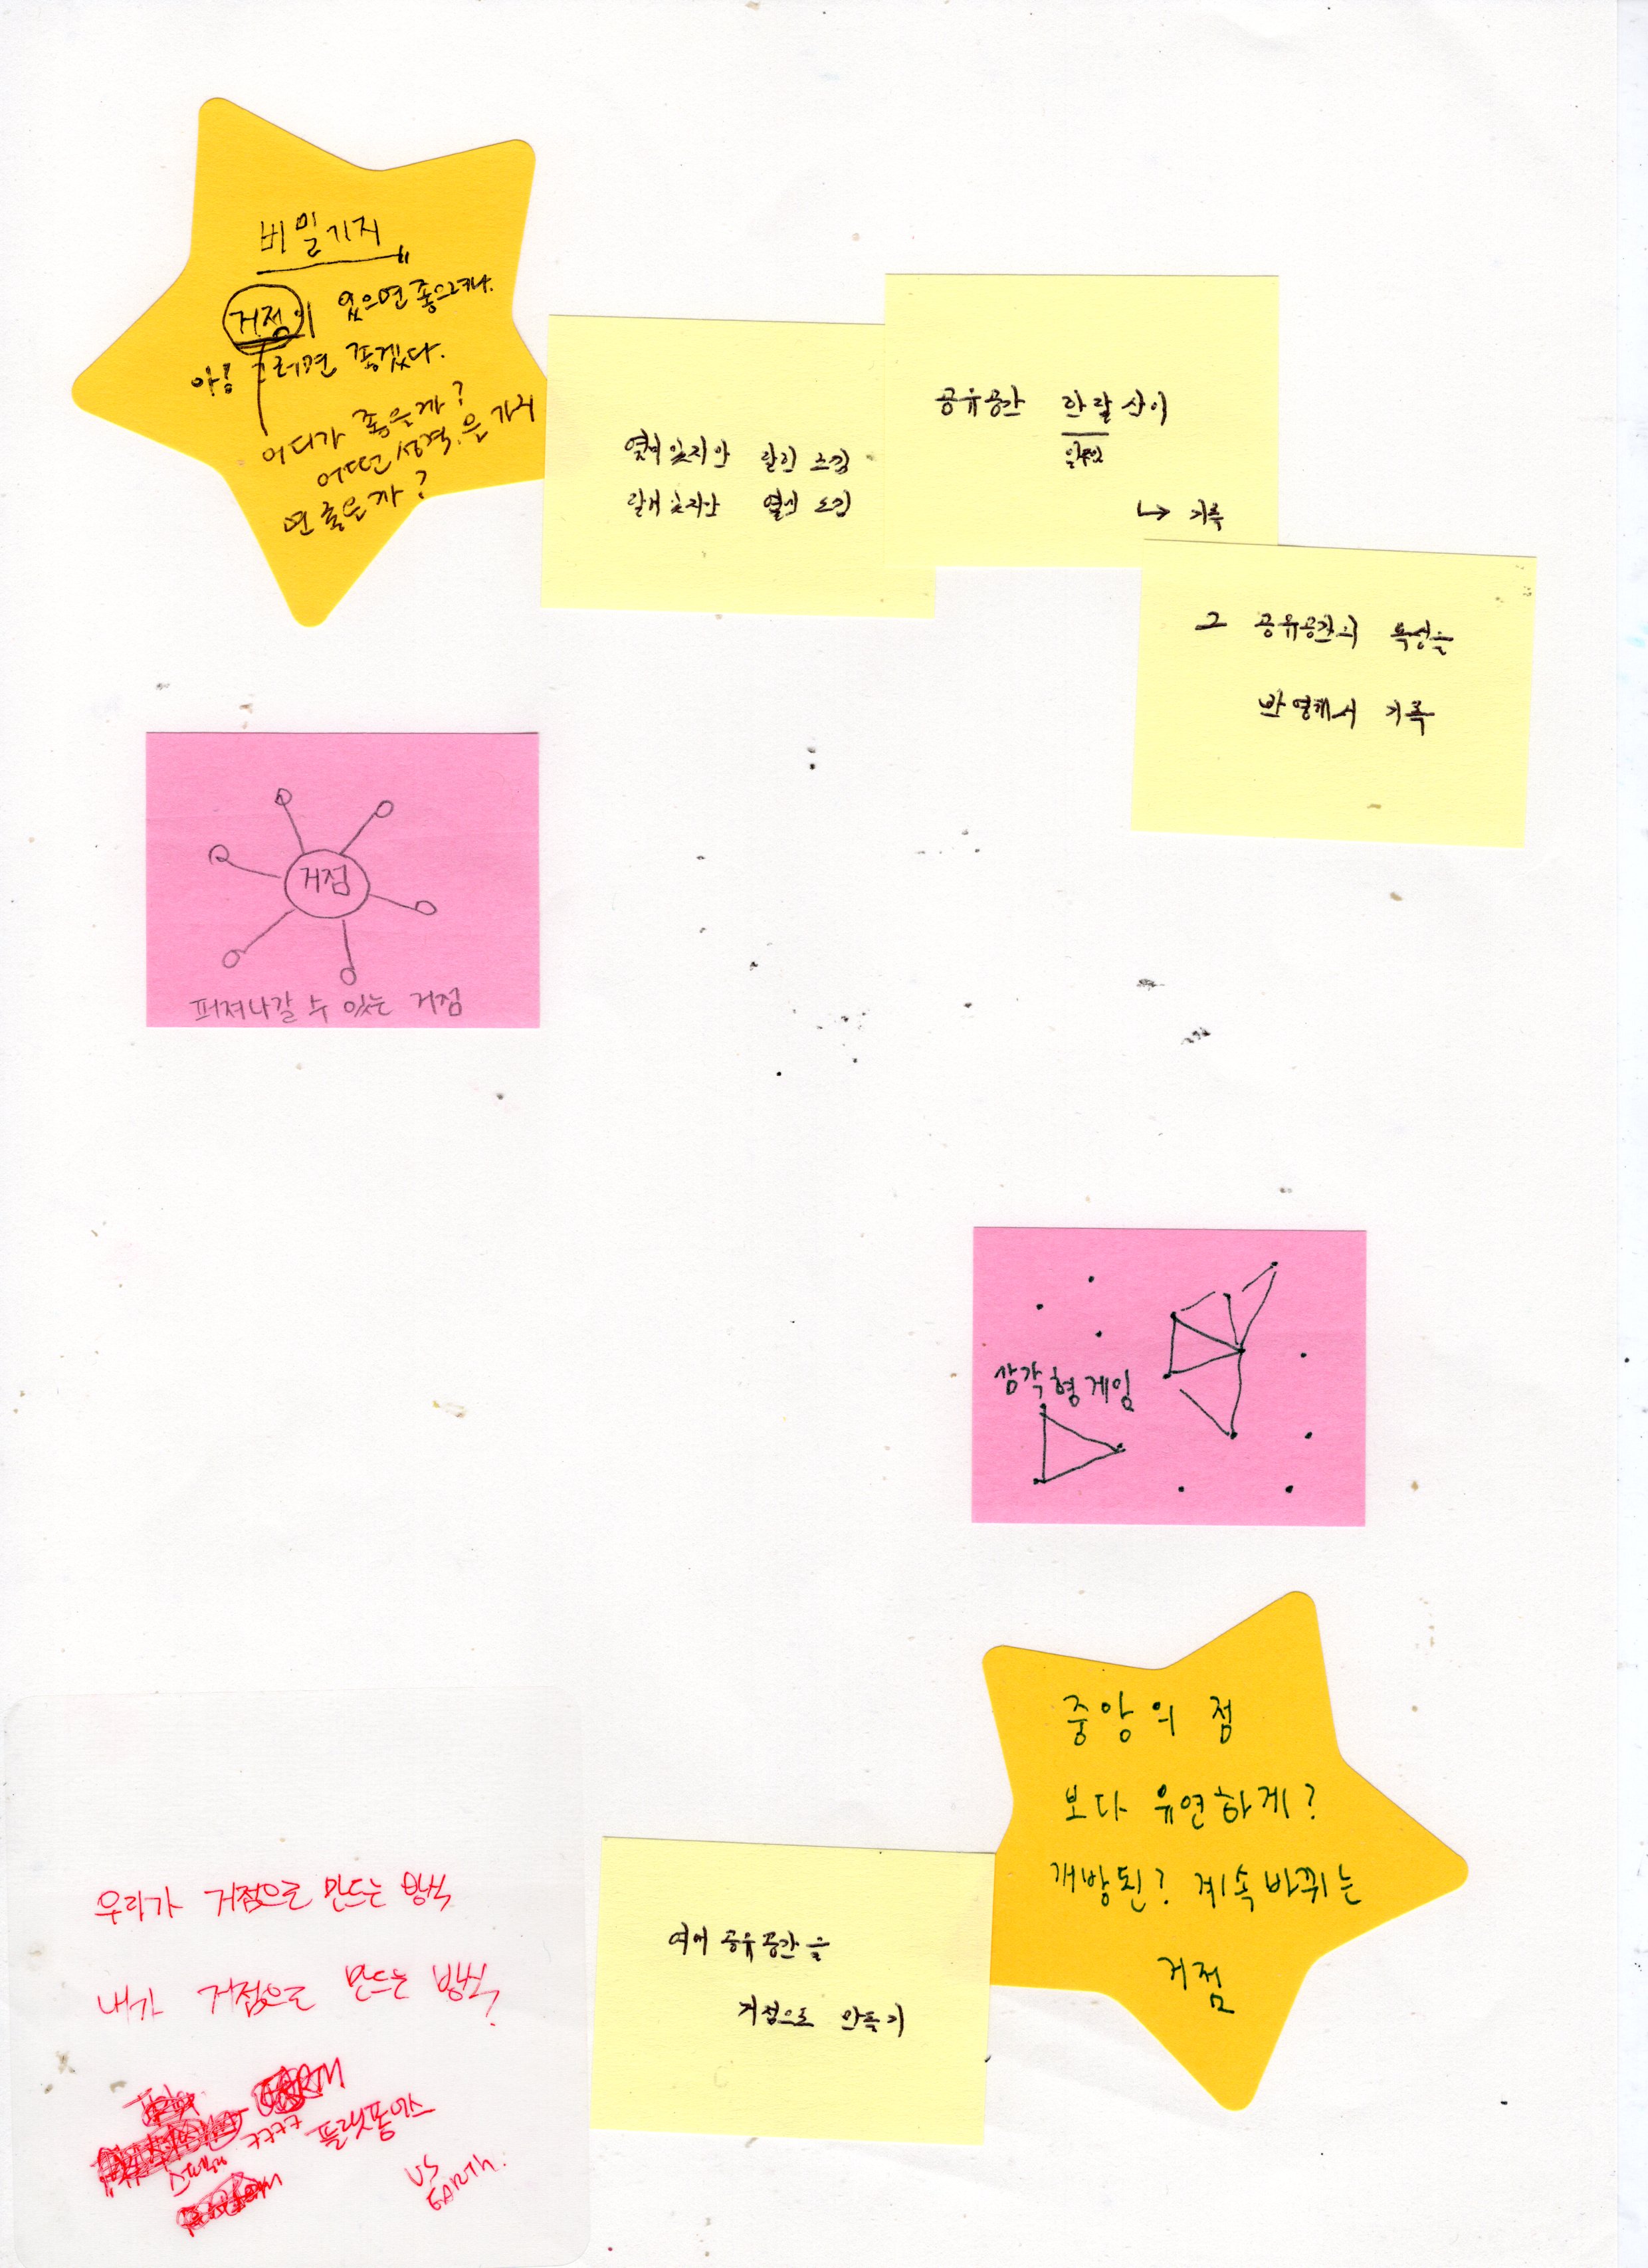 비밀기지
거점이 있으면 좋으려나.
아! 그러면 좋겠다.
어디가 좋을까?
어떤 성격을 가지
면 좋을까?
열려있지만 닫힌 느낌
닫혀있지만 열린 느낌
공유공간 한달살이
일주일
↳ 기록
그 공유공간의 특성을
반영해서 기록
거점
퍼져나갈 수 있는 거점
삼각형게임
중앙의 점
보다 유연하게?
개방된? 계속바뀌는
거점
여러 공유공간을
거점으로 만들기
우리가 거점으로 만드는 방식
내가 거점으로 만드는 방식?
ㅋㅋㅋㅋ 플랫폼어스
US
EARTH.